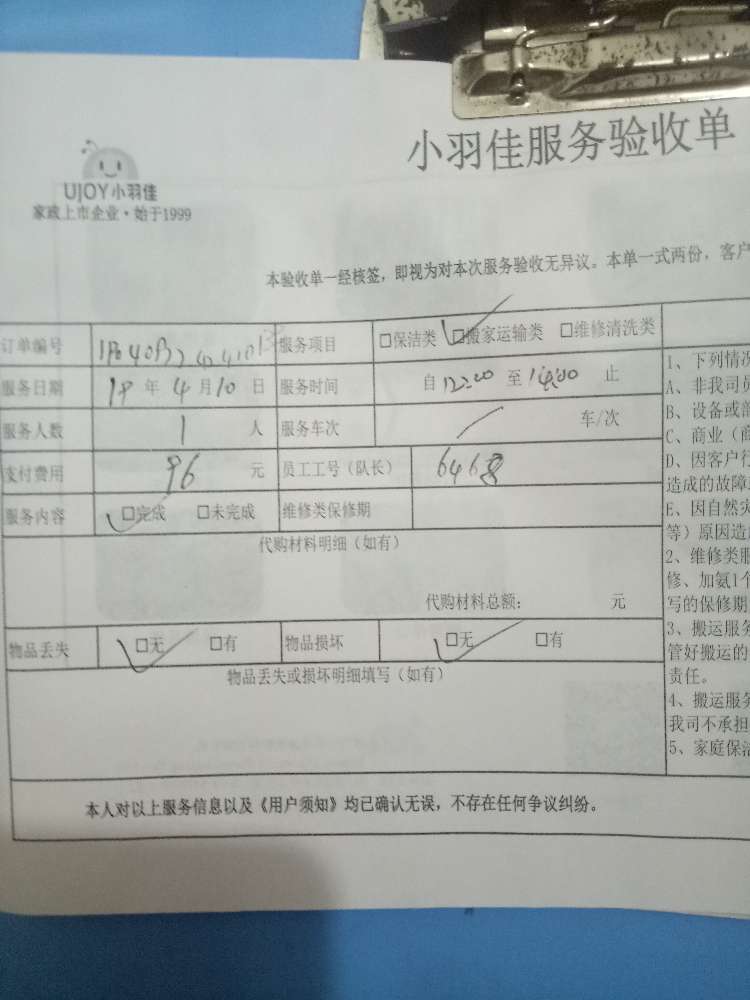 小羽佳服务验收单
UJOY小羽佳
家政上市企业·始于1999
本验收单一经核签，即视为对本次服务验收无异议。本单一式两份，客户
订单编号 服务项目 □保洁类 □搬家运输类 □维修清洗类
服务日期 18年4月10日 服务时间 自12:00至14:00止
服务人数 1人 服务车次 车/次
支付费用 96元 员工工号（队长） 6468
服务内容 □完成 □未完成 维修类保修期
代购材料明细（如有）
代购材料总额： 元
物品丢失 □无 □有 物品损坏 □无 □有
物品丢失或损坏明细填写（如有）
1、下列情况
A、非我司
B、设备或
C、商业（商
D、因客户行
造成的故障
E、因自然灾
等）原因造
2、维修类服
修、加氨1个
写的保修期
3、搬运服务
管好搬运的
责任。
4、搬运服务
我司不承担
5、家庭保洁
本人对以上服务信息以及《用户须知》均已确认无误，不存在任何争议纠纷。